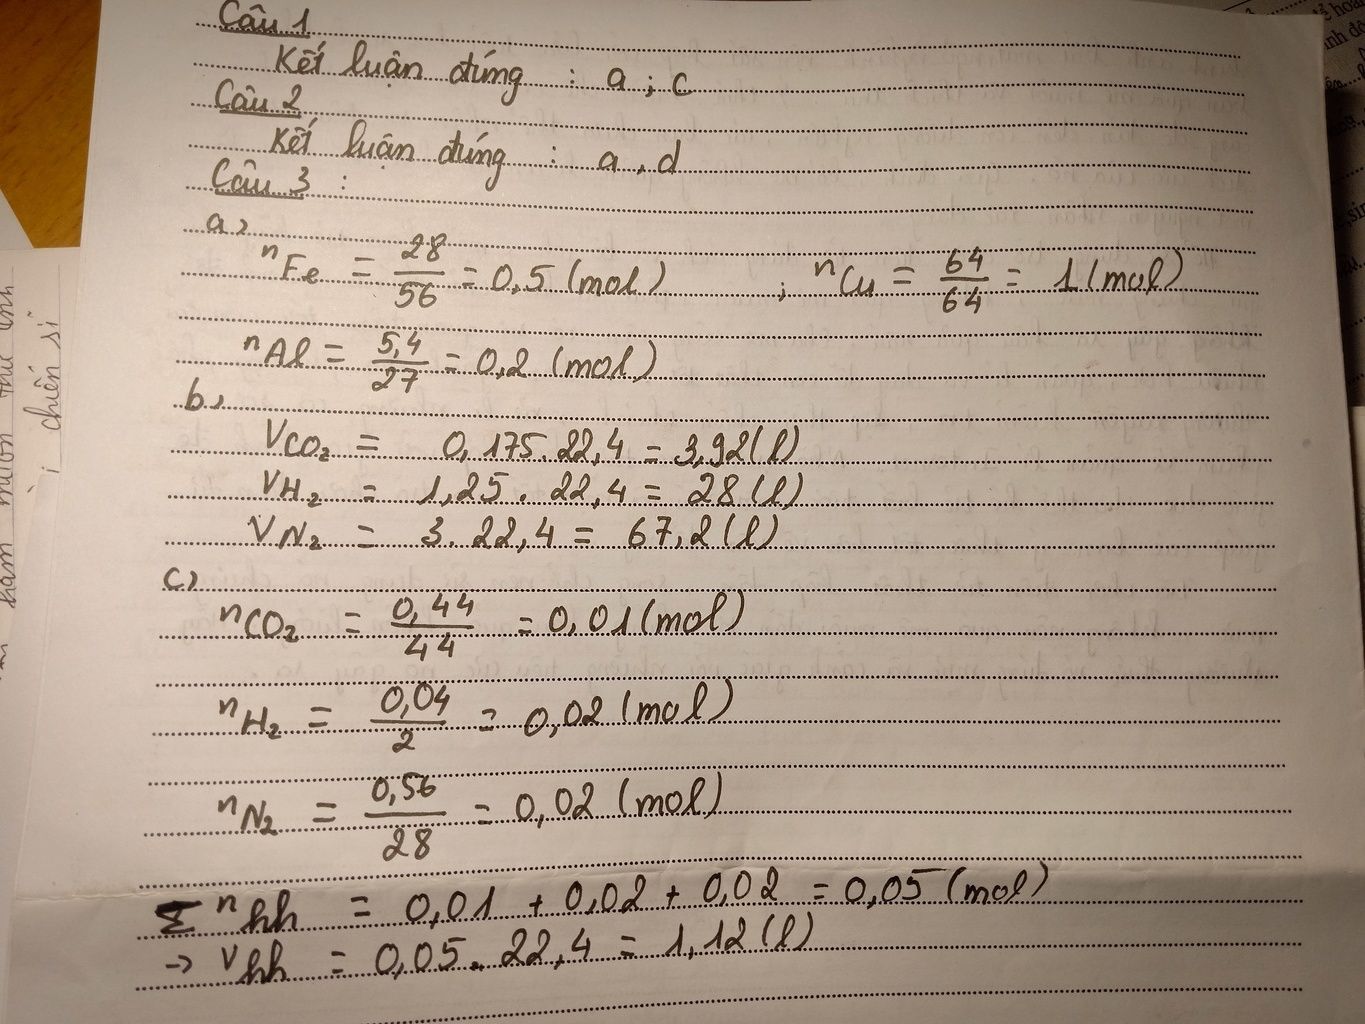 Câu 1
Kết luận đúng : a ; c
Câu 2
Kết luận đúng : a, d
Câu 3 :
a,
nFe = 28/56 = 0,5 (mol) ; nCu = 64/64 = 1 (mol)
nAl = 5,4/27 = 0,2 (mol)
b,
VCO₂ = 0,175.22,4 = 3,92 (l)
VH₂ = 1,25.22,4 = 28 (l)
VN₂ = 3.22,4 = 67,2 (l)
c,
nCO₂ = 0,44/44 = 0,01 (mol)
nH₂ = 0,04/2 = 0,02 (mol)
nN₂ = 0,56/28 = 0,02 (mol)
Σ nhh = 0,01 + 0,02 + 0,02 = 0,05 (mol)
→ Vhh = 0,05.22,4 = 1,12 (l)
chiến sĩ